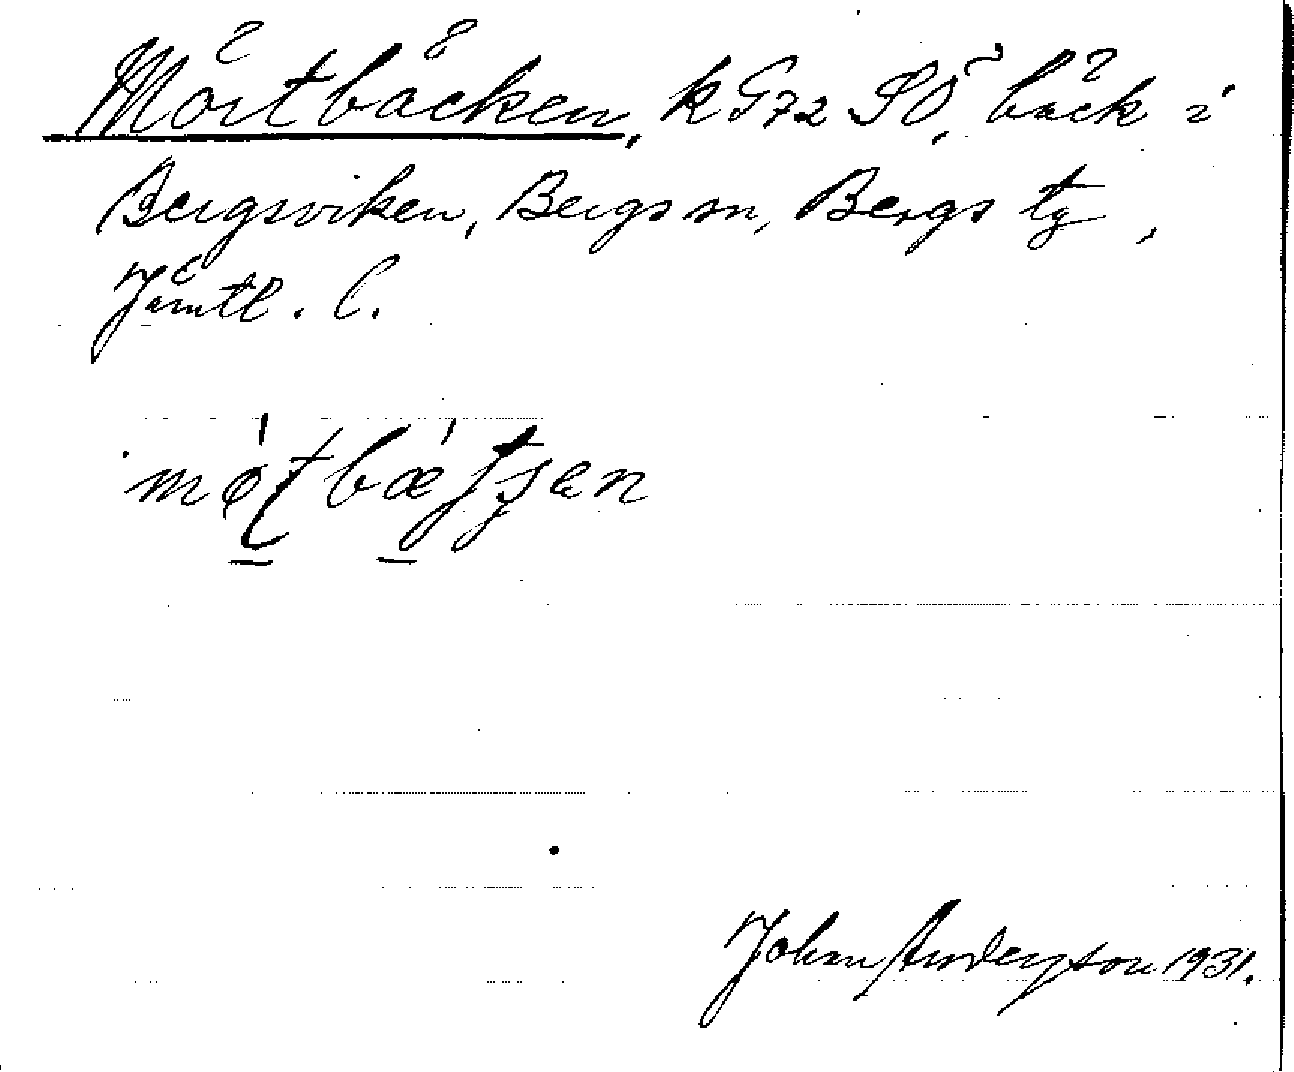 Mörtbäcken, k G72 SÖ, bäck i
Bergsviken, Bergs sn, Bergs tg,
Jämtl. l.
John Anderson 1931.